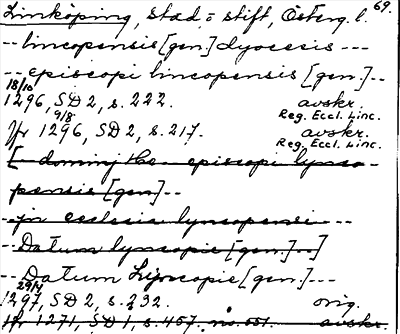 69.
Linköping, stad o stift, Österg. l.
-- lincopensis [gen.] dyocesis ---
-- episcopi lincopensis [gen.] --
18/10
1296, SD 2, s. 222. avskr.
Reg. Eccl. Linc.
9/8
Jfr 1296, SD 2, s. 217. avskr.
Reg. Eccl. Linc.
episcopi lynco-
pensis [gen] --
-- jn ecclesia lyncopensi ---
-- Datum lyncopie [gen.] --]
-- Datum Lijncopie [gen.] ---
1297, SD 2, s. 232. orig.
Jfr 1271, SD 1, s. 457, avskr.